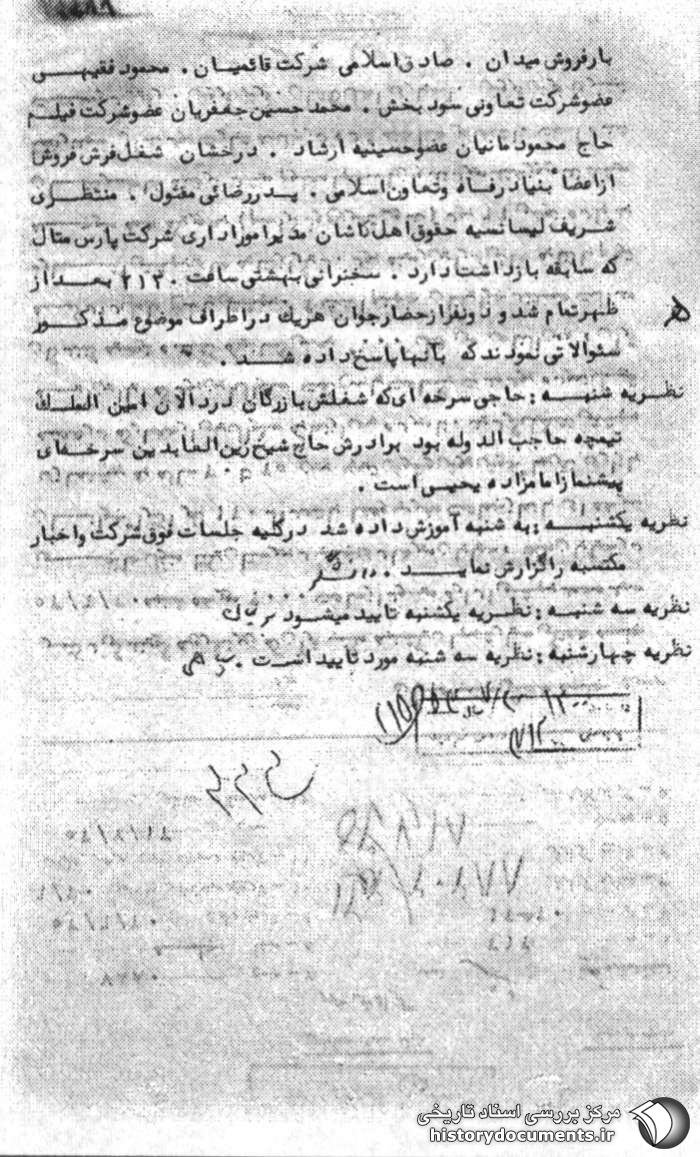 بارفروش میدان . صادق اسلامی شرکت قائمیان . محمود فقیهی
عضو شرکت تعاونی سود بخش . محمد حسین جعفریان عضو شرکت فیلم
حاج محمود مانیان عضو حسینیه ارشاد . درخشان شغل فرش فروش
از اعضاً بنیاد رفاه و تعاون اسلامی . پدر رضائی مقتول . منتظری
شریف لیسانسیه حقوق اهل کاشان مدیر امور اداری شرکت پارس متال
که سابقه بازداشت دارد . سخنرانی بهشتی ساعت ۲۱۳۰ بعد از
ظهر تمام شد و دو نفر از حضار جوان هریک در اطراف موضوع مذکور
سئوالاتی نمودند که بآنها پاسخ داده شد .
نظریه شنبه : حاجی سرخه ای که شغلش بازرگان در دالان امین الملک
تیمچه حاجب الدوله بود برادرش حاج شیخ زین العابدین سرخه‌ای
پیشنماز امامزاده یحیی است .
نظریه یکشنبه : به شنبه آموزش داده شد در کلیه جلسات فوق شرکت و اخبار
مکتسبه را گزارش نماید .
نظریه سه شنبه : نظریه یکشنبه تایید میشود
نظریه چهارشنبه : نظریه سه شنبه مورد تایید است .
مرکز بررسی اسناد تاریخی
historydocuments.ir